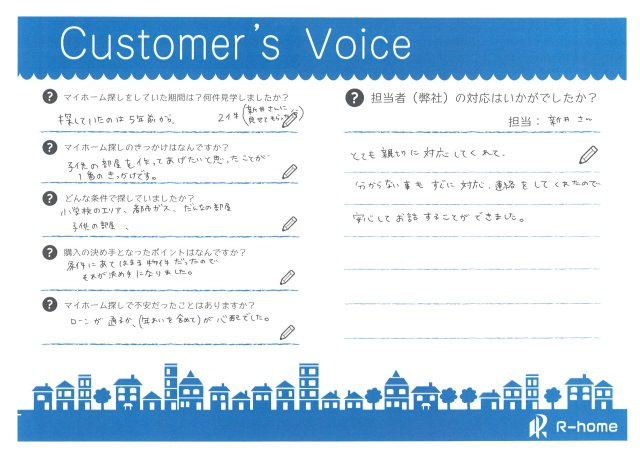 Customer's Voice
マイホーム探しをしていた期間は？何件見学しましたか？
探していたのは5年前から、 2件(新井さんに
見せてもらった)
マイホーム探しのきっかけはなんですか？
子供の部屋を作ってあげたいと思ったことが
1番のきっかけです。
どんな条件で探していましたか？
小学校のエリア、都市ガス、だんなの部屋
子供の部屋、
購入の決め手となったポイントはなんですか？
条件にあてはまる物件だったので
それが決め手になりました。
マイホーム探しで不安だったことはありますか？
ローンが通るか、(年れいを含めて)が心配でした。
担当者（弊社）の対応はいかがでしたか？
担当：新井さん
とても親切に対応してくれて、
分からない事もすぐに対応、連絡をしてくれたので
安心してお話することができました。
R-home